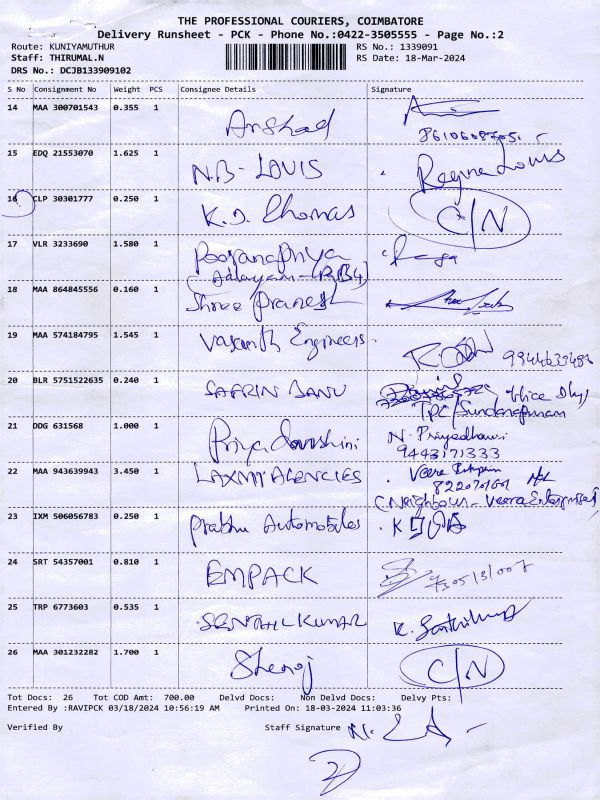 THE PROFESSIONAL COURIERS, COIMBATORE
Delivery Runsheet - PCK - Phone No.:0422-3505555 - Page No.:2
Route: KUNIYAMUTHUR RS No.: 1339091
Staff: THIRUMAL.N RS Date: 18-Mar-2024
DRS No.: DCJB133909102
S No Consignment No Weight PCS Consignee Details Signature
14 MAA 300701543 0.355 1 Arshad
15 EDQ 21553070 1.625 1 N.B- LOUIS Regina Louis
16 CLP 30301777 0.250 1 K.J. Thomas C/N
17 VLR 3233690 1.580 1 Poornapriya
18 MAA 864845556 0.160 1 Shree Pranesh
19 MAA 574184795 1.545 1 Vasanth Engineers
20 BLR 5751522635 0.240 1 SAFRIN BANU
TPC/Sundarapuram
21 DDG 631568 1.000 1 Priyadarshini N. Priyadharsini
9443171333
22 MAA 943639943 3.450 1 LAXMI AGENCIES
(Neighbour - Veera Enterprises)
23 IXM 506056783 0.250 1 Prabhu Automobiles
24 SRT 54357001 0.810 1 EMPACK
25 TRP 6773603 0.535 1 SENTHIL KUMAR
26 MAA 301232282 1.700 1 Shenoj C/N
Tot Docs: 26 Tot COD Amt: 700.00 Delvd Docs: Non Delvd Docs: Delvy Pts:
Entered By :RAVIPCK 03/18/2024 10:56:19 AM Printed On: 18-03-2024 11:03:36
Verified By Staff Signature